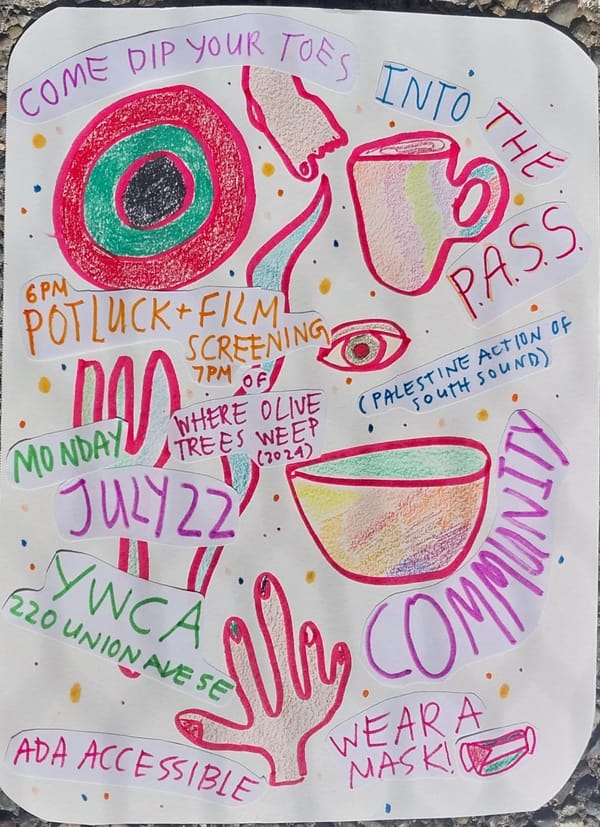 COME DIP YOUR TOES
INTO THE
P.A.S.S.
(PALESTINE ACTION OF
SOUTH SOUND)
COMMUNITY
6PM
POTLUCK + FILM
SCREENING
7PM
OF
WHERE OLIVE
TREES WEEP
(2024)
MONDAY
JULY 22
YWCA
220 UNION AVE SE
ADA ACCESSIBLE
WEAR A
MASK!